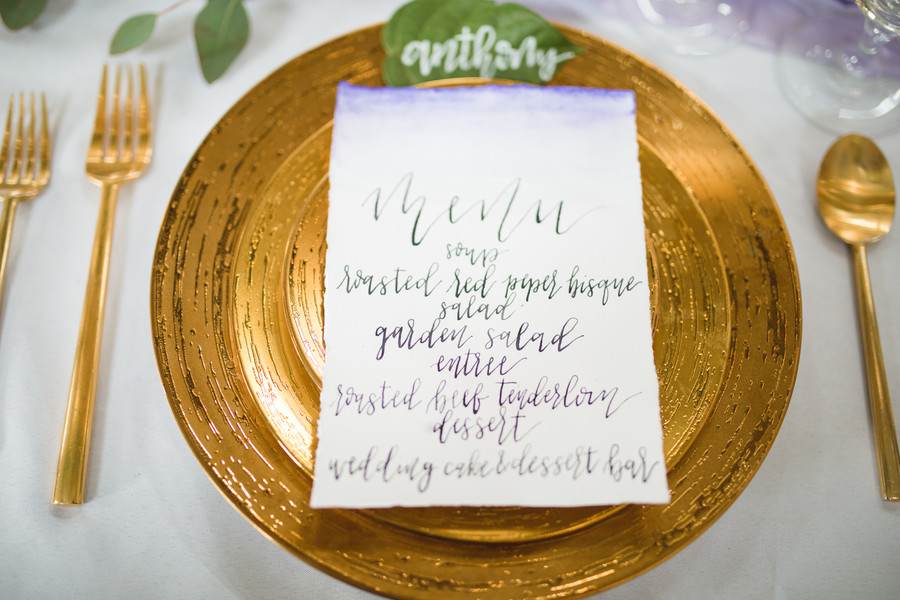 anthony
menu
soup
roasted red peper bisque
salad
garden salad
entree
roasted beef tenderloin
dessert
wedding cake & dessert bar